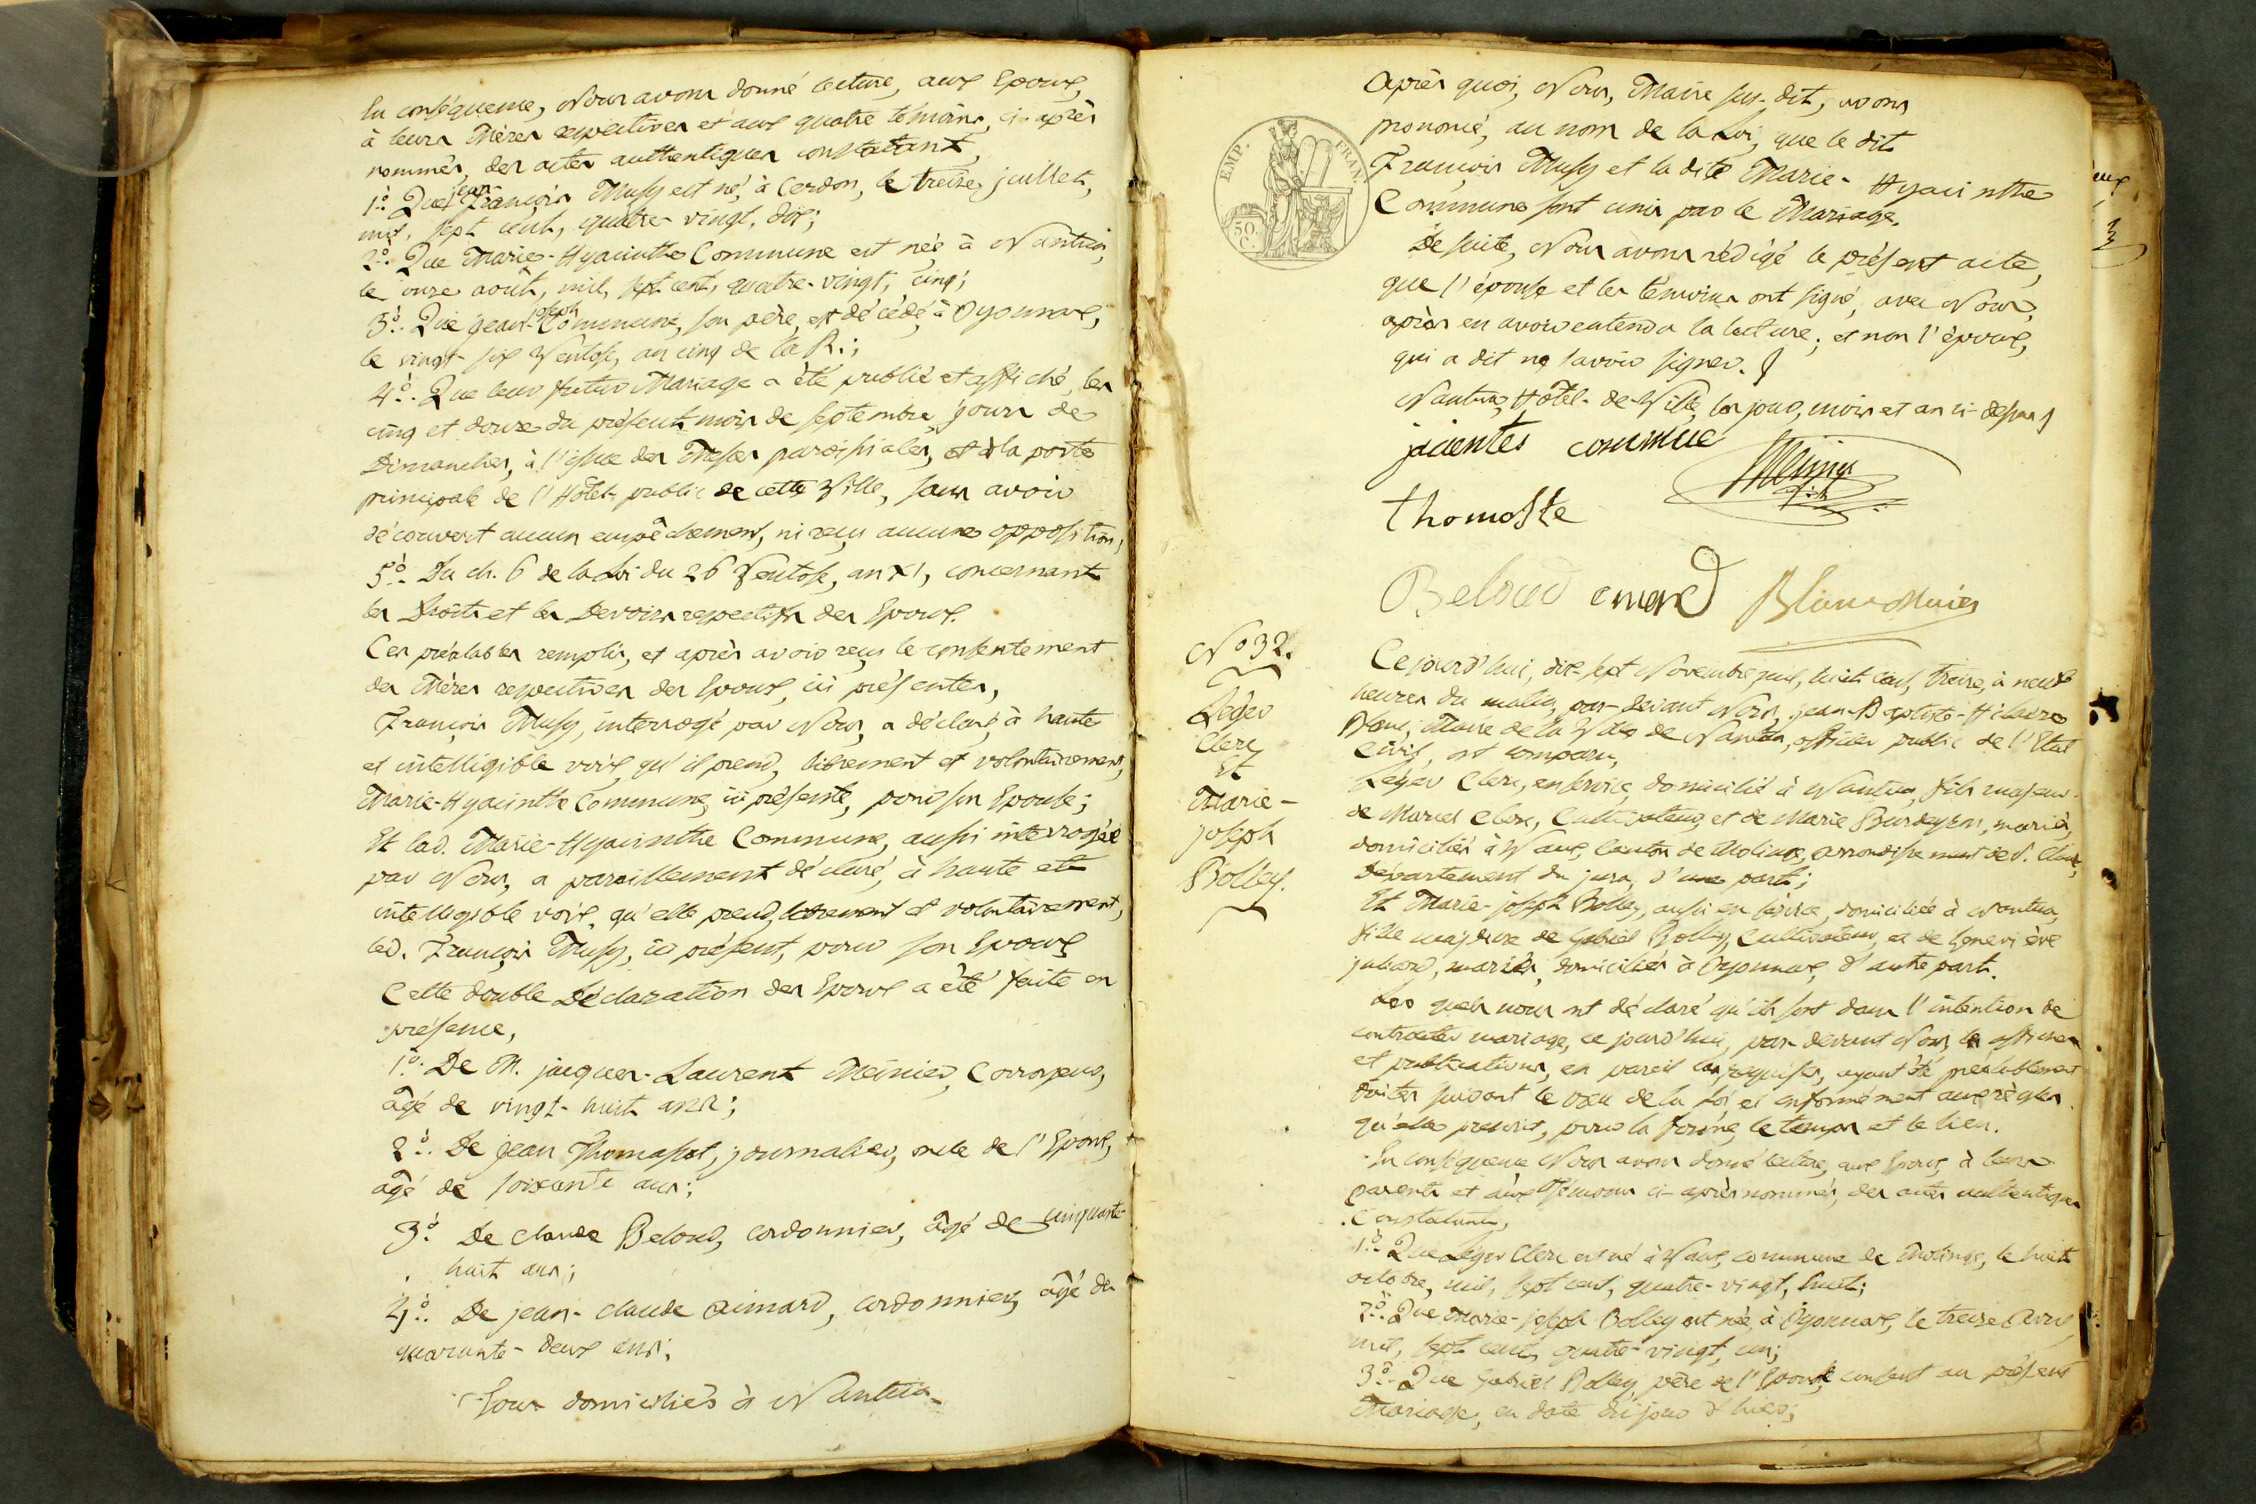 En conséquence, Nous avons donné lecture, aux Epoux,
à leurs Mères respectives et aux quatre témoins, ci-après
nommés, des actes authentiques constatant,
1º. Que jean François Mussy est né, à Cerdon, le treize juillet,
mil, sept cent, quatre-vingt, dix;
2º. Que Marie-Hyacinthe Commune est née à Nantua,
le onze août, mil, sept cent, quatre-vingt, cinq;
3º. Que jean-joseph Commune, son père, est décédé, à Oyonnax,
le vingt-six Ventose, an cinq de la R.;
4º. Que leur futur Mariage a été publié et affiché, les
cinq et douze du présent mois de septembre, jours de
Dimanches, à l'issue des Messes paroissiales, et à la porte
principale de l'Hôtel public de cette Ville, sans avoir
découvert aucun empêchement, ni reçu aucune opposition;
5º. Du ch. 6 de la Loi du 26 Ventose, an XI, concernant
les Droits et les Devoirs respectifs des Epoux.
Ces préalables remplis, et après avoir reçu le consentement
des Mères respectives des Epoux, ici présentes,
François Mussy, interrogé par Nous, a déclaré, à haute
et intelligible voix, qu'il prend, librement et volontairement,
Marie-Hyacinthe Commune, ici présente, pour son Epouse;
Et lad. Marie-Hyacinthe Commune, aussi interrogée
par Nous, a pareillement déclaré, à haute et
intelligible voix, qu'elle prend, librement et volontairement,
led. François Mussy, ici présent, pour son Epoux
Cette double Déclaration des Epoux a été faite en
présence,
1º. De M. jacques-Laurent Meinier, Corroyeur,
âgé de vingt-huit ans;
2º. De jean Thomasset, journalier, oncle de l'Epoux,
âgé de soixante ans;
3º. De claude Beloud, cordonnier, âgé de cinquante
huit ans;
4º. De jean-claude aimard, cordonnier, âgé de
quarante-deux ans;
Tous domiciliés à Nantua
Après quoi, Nous, Maire sus-dit, avons
prononcé, au nom de la Loi, que le dit
François Mussy et la dite Marie-Hyacinthe
Commune sont unis par le Mariage.
De suite, Nous avons rédigé le présent acte,
que l'épouse et les témoins ont signé, avec Nous,
après en avoir entendu la lecture; et non l'époux,
qui a dit ne savoir signer.
Nantua, Hôtel-de-Ville, les jour, mois et an ci-dessus
EMP. FRAN.
50 C.
jacientes commue
thomaste
Beloud emard
Nº 32.
Léger
Clerc
Et
Marie-
joseph
Bolley.
Ce jourd'hui, dix-sept Novembre, mil, huit cent, treize, à neuf
heures du matin, par-devant Nous, jean-Baptiste-Hilaire
Maire de la Ville de Nantua, officier public de l'Etat
Civil, ont comparu,
Léger Clerc, en service, domicilié à Nantua, fils majeur
de Marcel Clerc, Cultivateur, et de Marie Burdeyron, mariés,
domiciliés à Vaux, Canton de Molinge, arrondissement de S. Claude,
Département du jura, d'une part;
Et Marie-joseph Bolley, aussi en service, domiciliée à Nantua,
fille majeure de Gabriel Bolley, Cultivateur, et de Geneviève
juhard, mariés, domiciliés à Oyonnax, d'autre part.
Les quels nous ont déclaré qu'ils sont dans l'intention de
contracter mariage, ce jourd'hui, par-devant Nous, les affiches
et publications, en pareil cas requises, ayant été préalablement
faites suivant le vœu de la Loi et conformément aux règles
qu'elle prescrit, pour la forme, le temps et le lieu.
En conséquence Nous avons donné lecture, aux Epoux, à leurs
parents et aux Témoins ci-après nommés, des actes authentiques
Constatants,
1º. Que Léger Clerc est né à Vaux, commune de Molinge, le huit
octobre, mil, sept cent, quatre-vingt, huit;
2º. Que Marie-joseph Bolley est née, à Oyonnax, le treize avril
mil, sept cent, quatre-vingt, un;
3º. Que Gabriel Bolley, père de l'Epouse, consent au présent
Mariage, en date du jour d'hier;